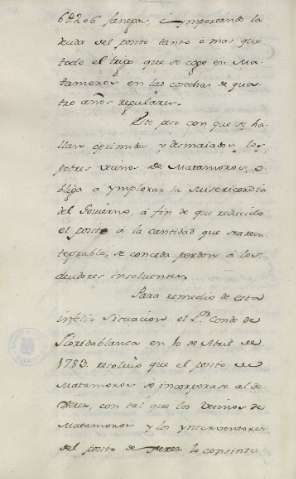 6@206 fanegas, è importando la
deuda del posito tanto ó mas que
todo el trigo que se coge en Ma-
tamoros en las cosechas de qua-
tro años regulares.
Este peso con que se ha-
llan oprimidos y desmaiados los
pobres vecinos de Matamoros, o-
bliga a ymplorar la Misericordia
del Govierno, á fin de que reducido
el posito á la cantidad que sea rein-
tegrable, se conceda perdon á los
deudores insolventes.
Para remedio de esta
infeliz situacion el S.or Conde de
Floridablanca en 10 de Abril de
1783 resolvió que el posito de
Matamoros se incorporase al de
Xerez, con tal que los vecinos de
Matamoros y los ynterventores
del posito de Xerez lo consintie